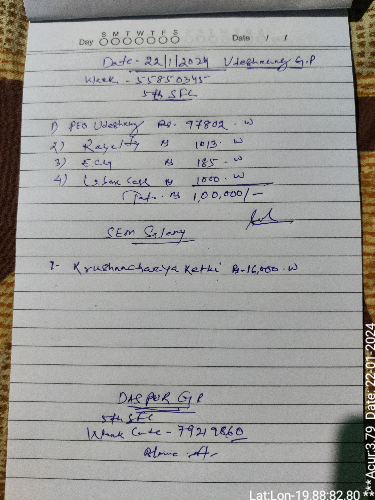 S M T W T F S
Day Date / /
Date - 22/1/2024 Udeshnang G.P
Work - 55850345
5th SFC
1) PEO Udeshnang Rs. 97802. W
2) Royalty Rs 1013. W
3) ECly Rs 185. W
4) Labour Cess Rs 1000. W
Rs 1,00,000/-
SEM Salary
1- Krushnachariya Ketki Rs-16,000. W
DASPUR G.P
5th SFC
Work Code - 7929860
Lat:Lon-19.88:82.80 ***Acur:3.79 Date: 22-01-2024